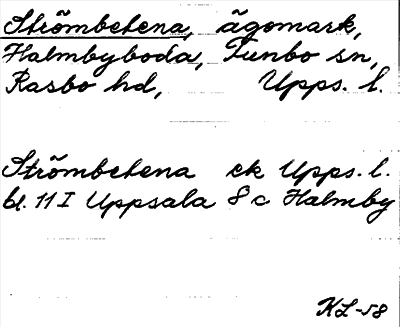 Strömbetena, ägomark,
Halmbyboda, Funbo sn,
Rasbo hd, Upps. l.
Strömbetena ek Upps. l.
bl. 11 I Uppsala 8 c Halmby
KL-58